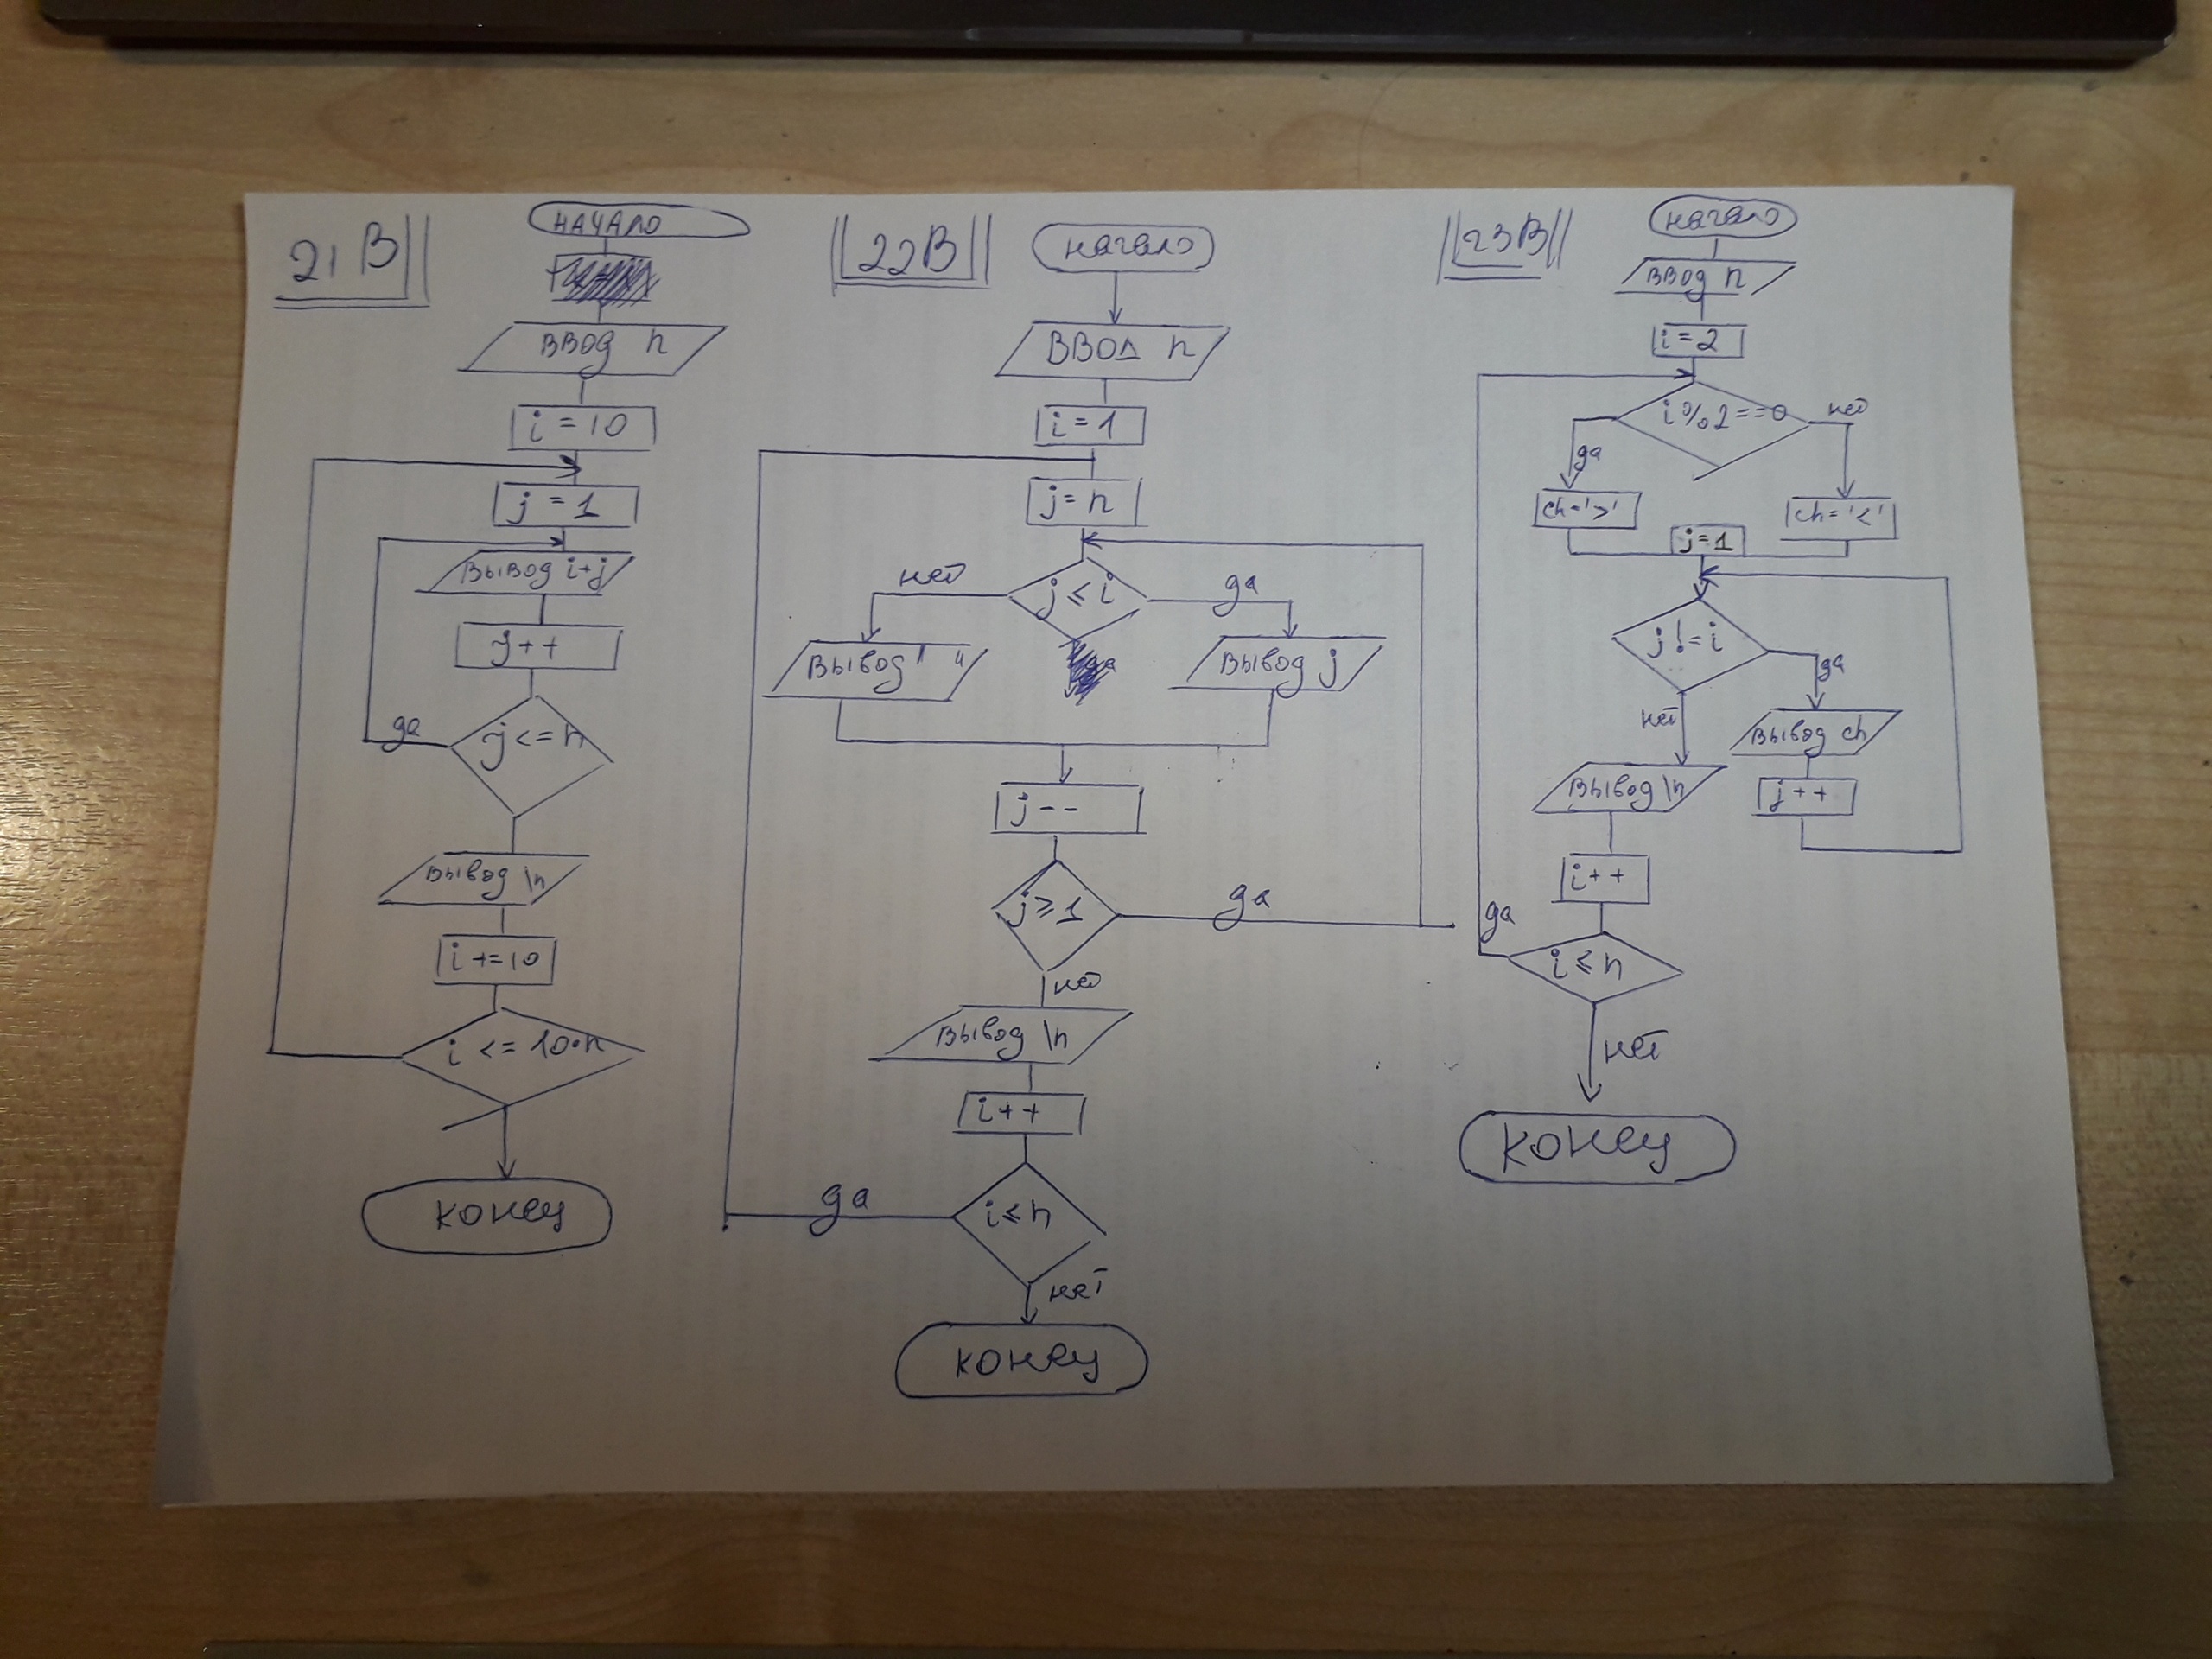 21В
НАЧАЛО
ВВОД n
i = 10
j = 1
Вывод i+j
j++
j <= n
да
Вывод \n
i +=10
i <= 10·n
конец
22В
начало
ВВОД n
i = 1
j = n
j ≤ i
нет
да
Вывод " "
Вывод j
j--
j ≥ 1
да
нет
Вывод \n
i++
i ≤ n
да
нет
конец
23В
начало
Ввод n
i = 2
i % 2 == 0
нет
да
ch = '>'
ch = '<'
j = 1
j != i
да
нет
Вывод ch
Вывод \n
j++
i++
да
i ≤ n
нет
конец